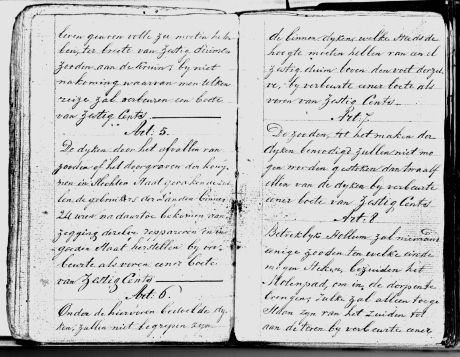 leven gewoon volle zee moeten heb
ben, ter boete van Zestig
zooden aan de kanten; by niet
nakoming waarvan men telken
reize zal verbeuren een boete
van Zestig Cents
Art. 5.
De dyken door het afvallen van
zooden of het doorgraven der
in slechten Staat geraakende zul
len de gebruikers der Landen binnen
24 uren na daartoe bekomen aan
zegging dezelve repareeren en in
goeden Staat herstellen by ver
beurte als voren eener boete
van Zestig Cents
Art. 6.
Onder de hiervoren bedoelde dy
ken, zullen niet begrepen zyn
de binnen dyken, welke
hoogte moeten hebben van een el
Zestig duim boven den voet derzel
ve, by verbeurte eener boete als
voren van Zestig Cents
Art. 7.
De zooden, tot het maken der
dyken benoodigd zullen niet mo
gen worden gestoken dan twaalf
ellen van de dyken by verbeurte
eener boete van Zestig Cents
Art. 8
Betreklyk zal niemand
eenige zooden ten welke einde
mogen steken, bezuiden het
Molenpad, om in de dorpen te
brengen zulks zal alleen toege
staan zyn van het zuiden tot
aan de toren by verbeurte eener